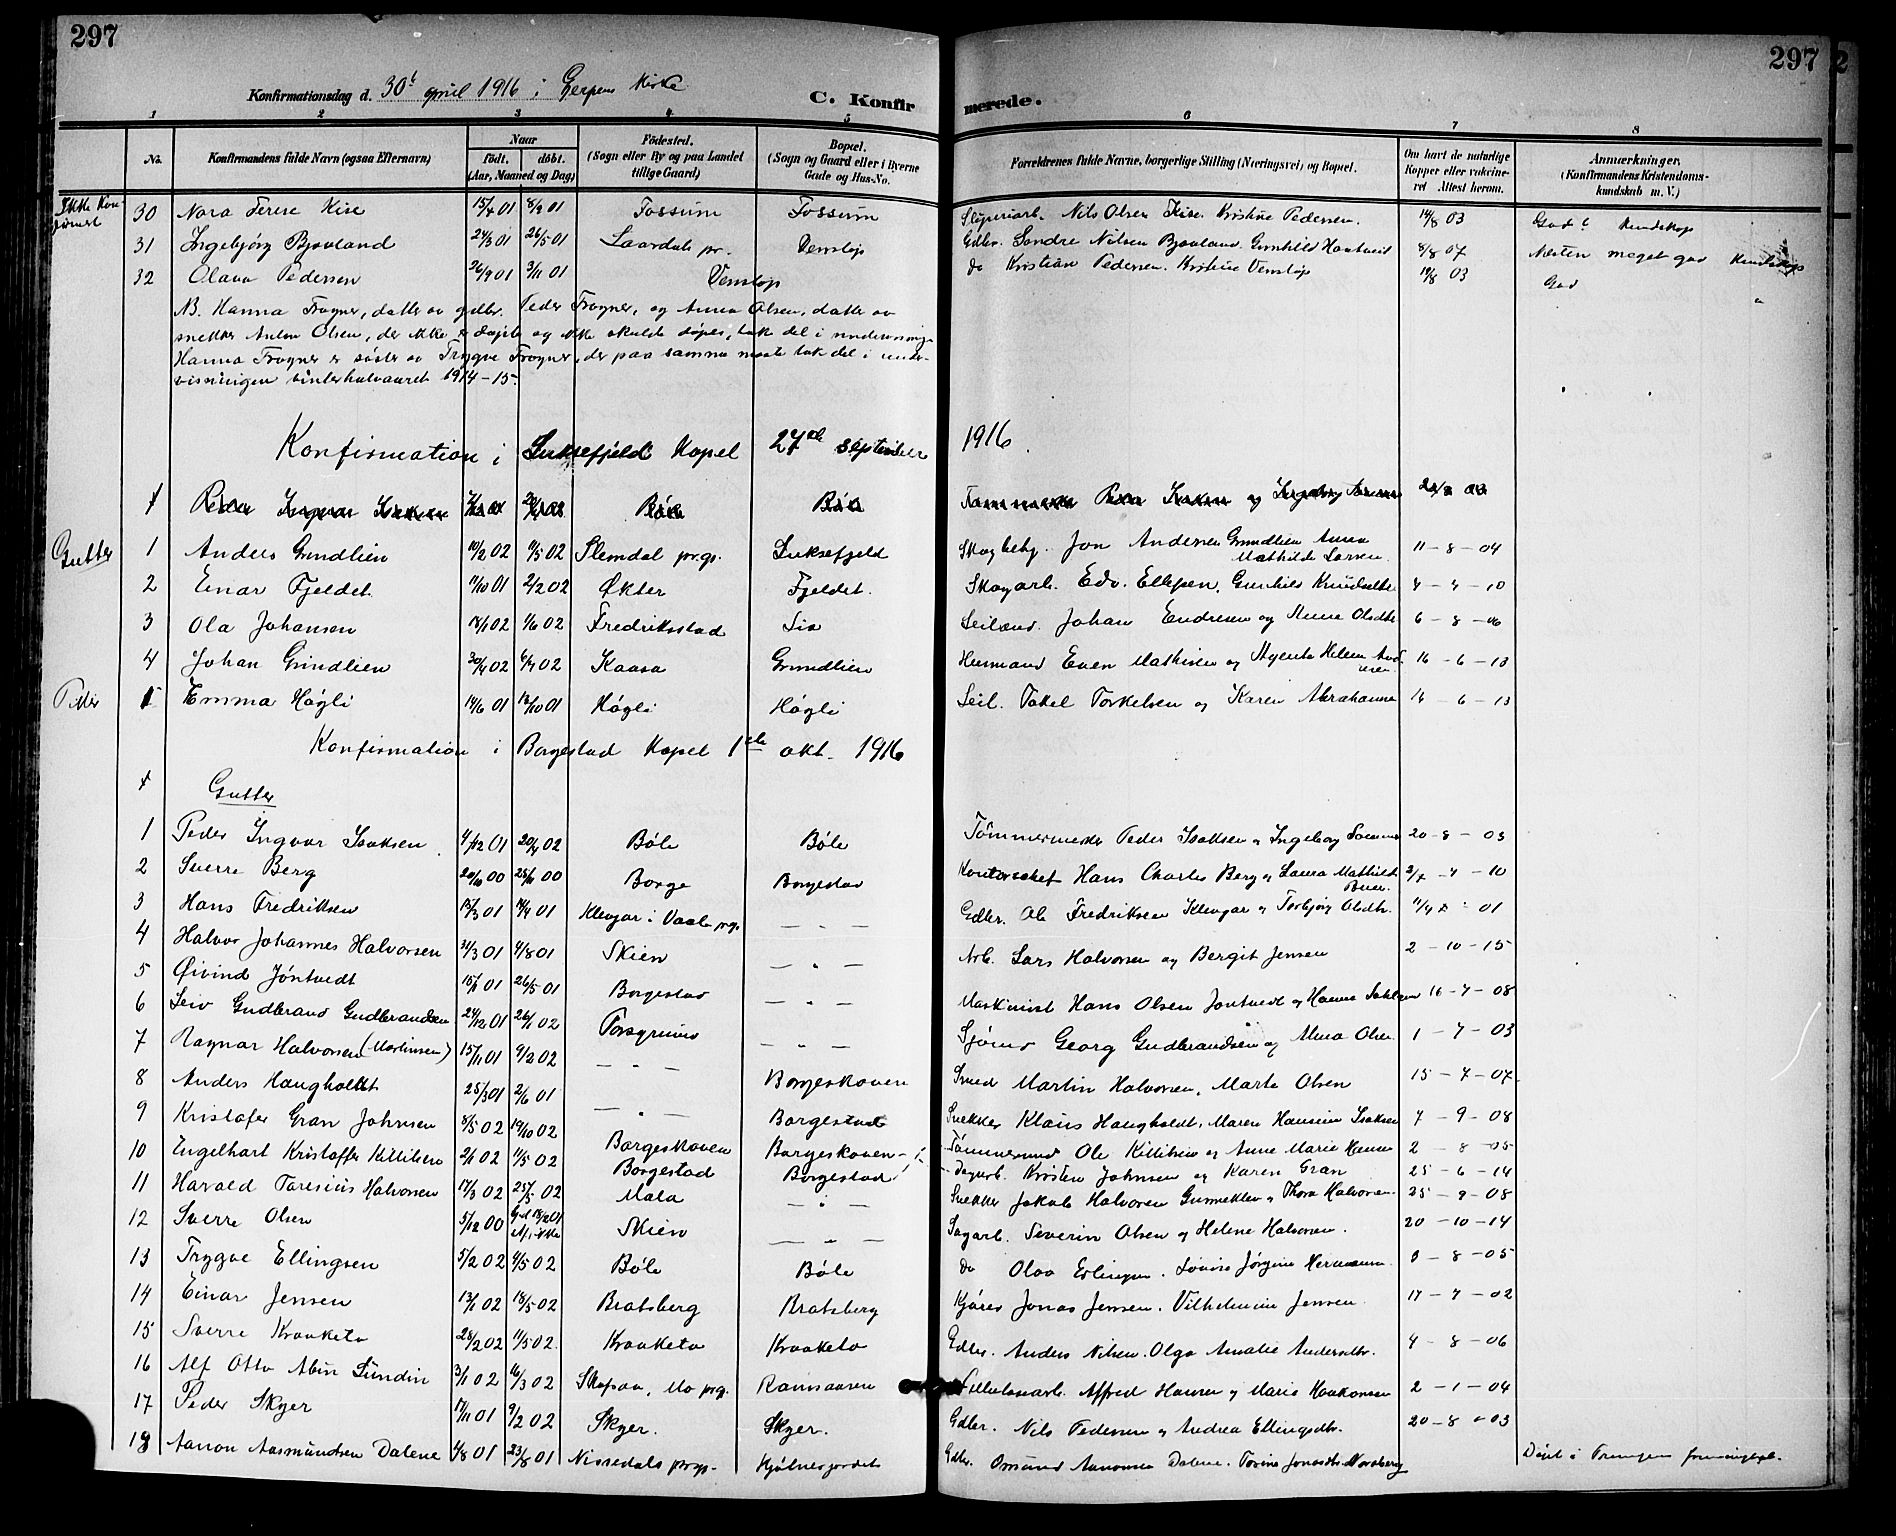 297
297
Konfirmationsdag d. 30t april 1916 i Gjerpens Kirke
C. Konfir
merede.
1 2 3 4 5 6 7 8
No.
Konfirmandens fulde Navn (ogsaa Efternavn)
Naar
født. døbt.
(Aar, Maaned og Dag)
Fødested.
(Sogn eller By og paa Landet
tillige Gaard)
Bopæl.
(Sogn og Gaard eller i Byerne
Gade og Hus-No.
Forældrenes fulde Navne, borgerlige Stilling (Næringsvei) og Bopæl.
Om havt de naturlige
Kopper eller vaksine-
ret Attest herom.
Anmærkninger,
(Konfirmandens Kristendoms-
kundskab m. V.)
30 Nora Terese Kise 15/4 01 8/9 01 Fossum Fossum Sliperiarb. Nils Olsen Kise. Kristine Pedersen. 14/8 03 God Kundskap
31 Ingebjørg Bjaaland 24/3 01 26/5 01 Laardals pr. Venstøp Gdbr. Sondre Nilsen Bjaaland. Gunhild 8/8 07 Næsten meget god Kundskap
32 Olava Pedersen 26/9 01 3/11 01 Venstøp do Kristian Pedersen. Kristine Venstøp 19/8 03 God "
NB. Hanna Frogner, datter av gdbr. Peder Frogner, og Anna Olsen, datter av
snekker Anton Olsen, der ikke er døpte og ikke skulde døpes, tok del i undervisning.
Hanna Frogner er søster av Trygve Frogner, der paa samme maate tok del i under-
visningen vinterhalvaaret 1914-15.
Konfirmation i Luksefjeld Kapel 27de September 1916.
Gutter
1 Anders Grindlien 10/2 02 9/5 02 Slemdal prgj. Luksefjeld Skogbetj. Jon Andersen Grindlien Anna Mathilde Larsen 11-8-04
2 Einar Fjeldet 11/10 01 2/2 02 Økter Fjeldet. Skogarb. Edv. Ellefsen, Gunhild Knudsdtr 4-4-10
3 Ola Johansen 18/1 02 1/6 02 Fredriksstad Lia Seilend. Johan Endresen og Anna Olsdtr 6-8-06
4 Johan Grindlien 30/4 02 6/7 02 Kaasa Grindlien Husmand Even Mathisen og Agente Helene 16-6-13
1 Emma Høgli 14/6 01 13/10 01 Høgli Høgli Seil. Takel Torkelsen og Karen Abrahamsen 14-6-13
Konfirmation i Borgestad Kapel 1ste okt. 1916
Gutter
1 Peder Ingvar Isaksen 4/12 01 20/4 02 Bøle Bøle Tømmermester Peder Isaksen og Ingeborg 20-8-03
2 Sverre Berg 20/10 00 25/11 00 Borge Borgestad Kontorchef Hans Charles Berg og Laura Mathilde 2/7-4-10
3 Hans Fredriksen 13/3 01 14/4 01 Klevjar i Vaale prgj. — " — Gdbr. Ole Fredriksen Klevjar og Torbjørg Olsdtr. 01
4 Halvor Johannes Halvorsen 31/3 01 4/8 01 Skien — " — Arb. Lars Halvorsen og Bergit Jensen 2-10-15
5 Øivind Jøntvedt 15/1 01 26/5 01 Borgestad — " — Maskinist Hans Olsen Jøntvedt og Hanna 16-7-08
6 Leiv Gudbrand Gudbrandsen 24/12 01 26/1 02 Porsgrund — " — Sjømd Georg Gudbrandsen og Alma Olsen 1-7-03
7 Ragnar Halvorsen (Martinsen) 15/11 01 9/2 02 — " — Borgeskoven Smed Martin Halvorsen, Marte Olsen 15-7-07.
8 Anders Haugholdt 25/3 01 2/6 01 — " — Borgestad Snekker Klaus Haugholdt, Maren Hansine Isaksen 7-9-08
9 Kristofer Gran Johnsen 3/5 02 19/10 02 Borgeskoven Borgeskoven Tømmermand Ole Killilsen og Anne Marie Hansen 2-8-05
10 Engelhart Kristoffer Killilsen 2/1 02 11/5 02 Borgestad Borgestad Dagarb. Kristen Johnsen og Karen Gran 25-6-14
11 Harald Taresius Halvorsen 17/3 02 25/5 02 Mæla — " — Snekker Jakob Halvorsen Gunneklev og Thora Halvorsen 25-9-08
12 Sverre Olsen 5/12 00 Skien — " — Sagarb. Severin Olsen og Helene Halvorsen. 20-10-14
13 Trygve Ellingsen 5/2 02 4/5 02 Bøle Bøle do Olav Erlingsen. Lovise Jørgine Hermansen 8-8-05
14 Einar Jensen 13/1 02 18/5 02 Bratsberg Bratsberg Kjører Jonas Jensen. Vilhelmine Jensen 17-7-02
15 Sverre Kraaketo 28/2 02 11/5 02. Kraaketo Kraaketo Gdbr. Anders Nilsen. Olga Amalie Andersdtr. 4-8-06
16 Alf Otto Albin Lundin 3/1 02 16/3 02 Skafsaa, Mo prgj. Ramsaasen Cellulosearb. Alfred Hansen og Marie Haakonsen 2-1-04
17 Peder Skyer 17/11 01 9/2 02 Skyer. Skyer. Gdbr. Nils Pedersen og Andrea Ellingsdtr. 20-8-03
18 Aanon Aasmundsen Dalene 4/8 01 23/8 01 Nissedals prgj. Hjølnesjordet Gdbr. Omund Aanonsen Dalene. Torine Jonasdtr. Nordberg Døpt i Treungen